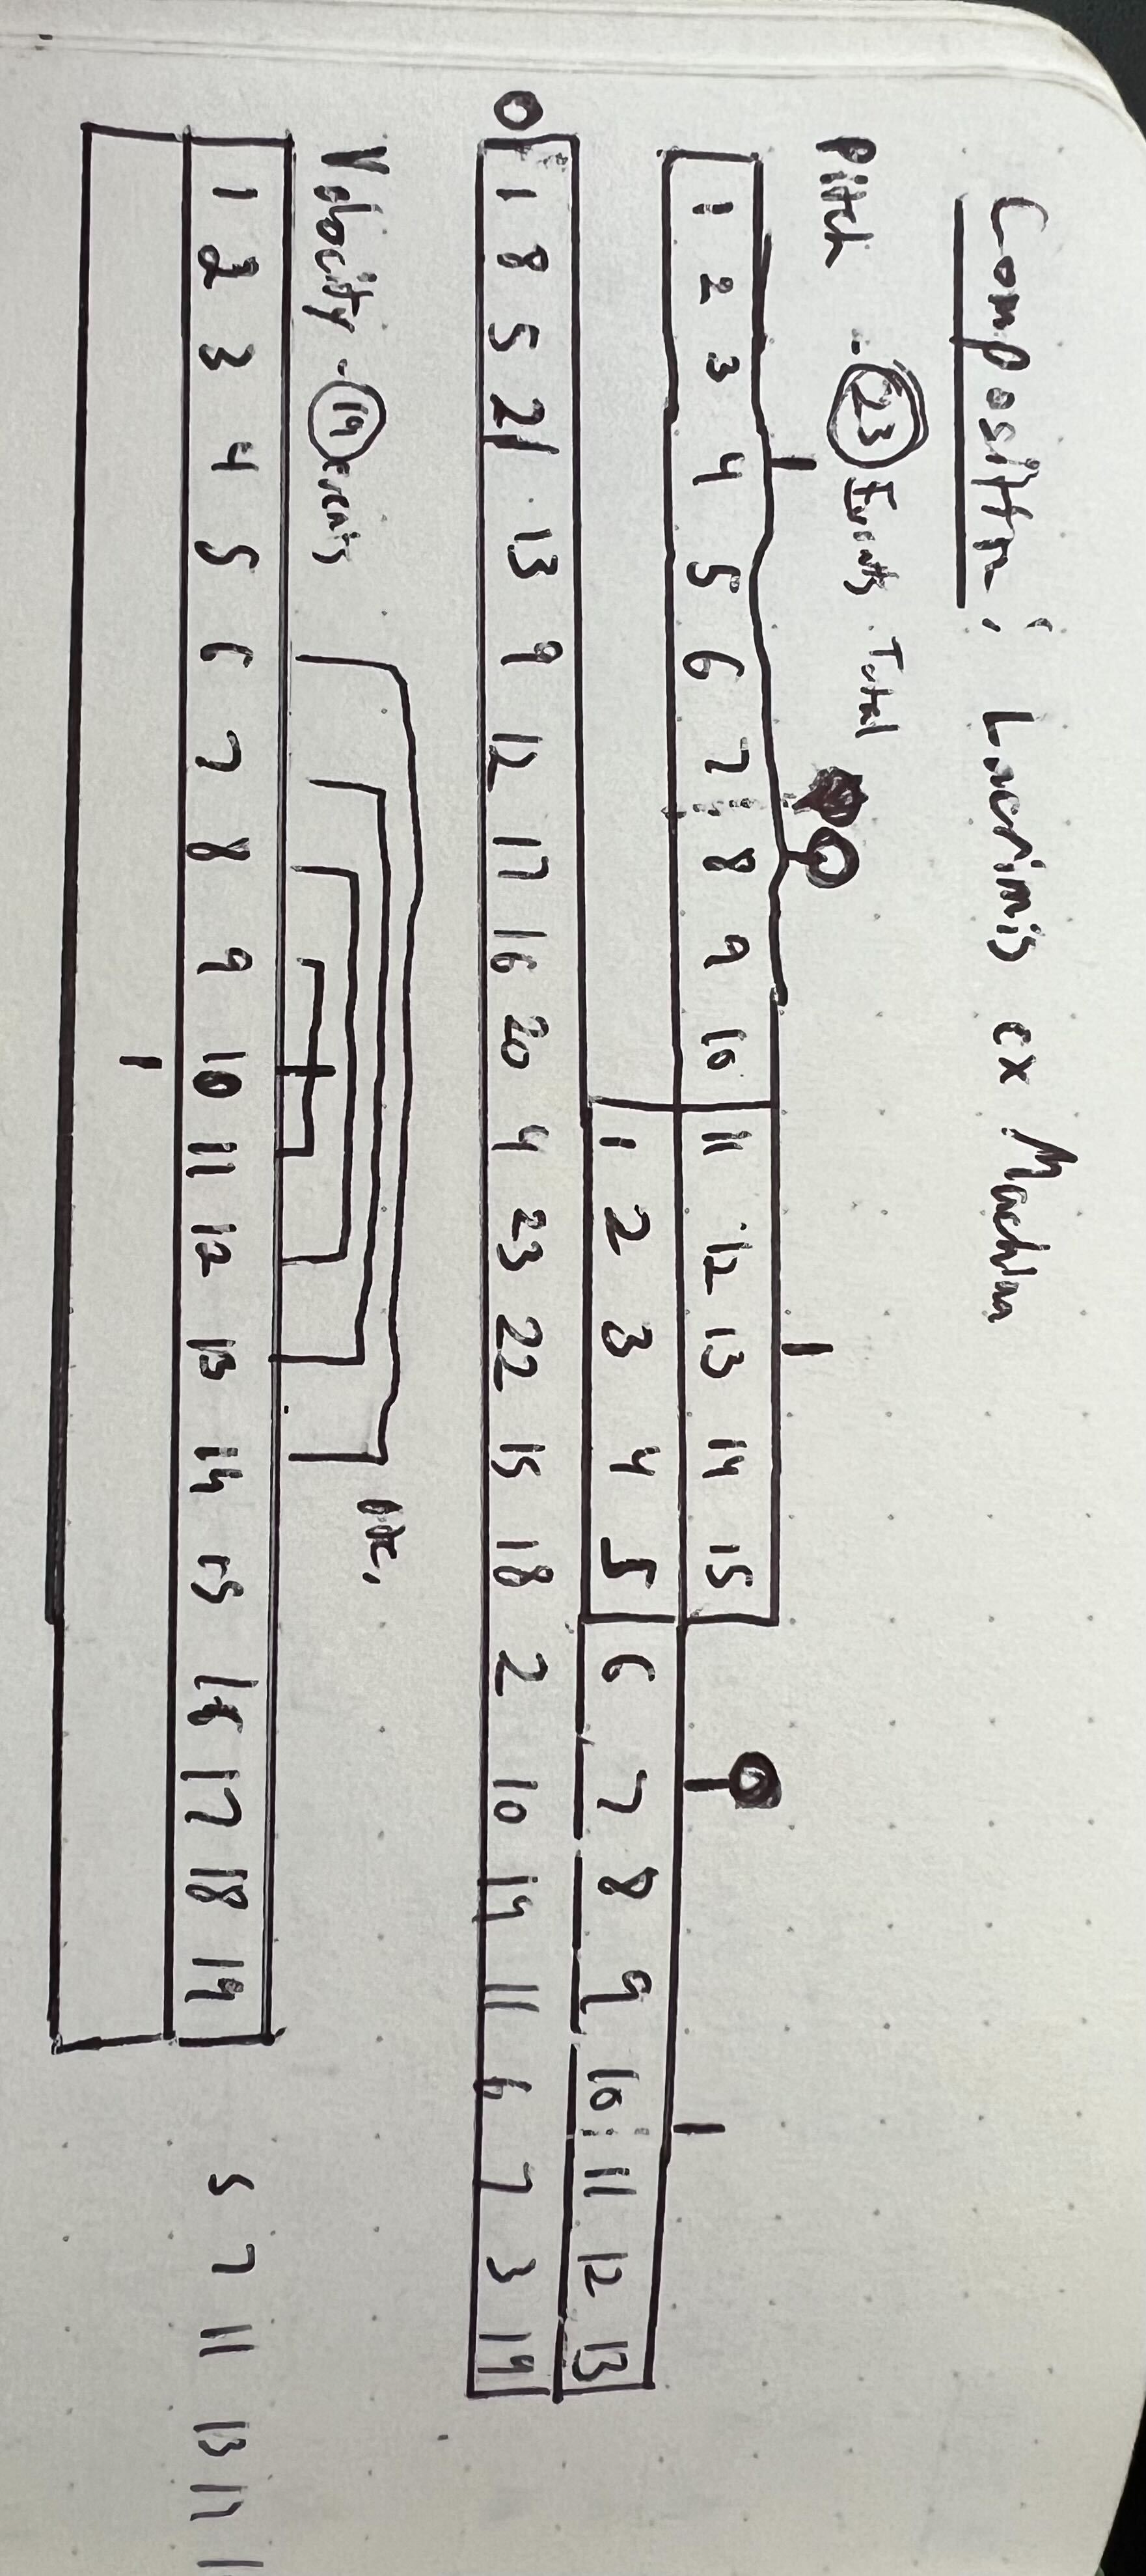 Composition: Lacrimis ex Machina
Pitch - 23 Events Total
1 2 3 4 5 6 7 8 9 10 11 12 13 14 15
1 2 3 4 5 6 7 8 9 10 11 12 13
0 1 8 5 21 13 9 12 17 16 20 4 23 22 15 18 2 10 14 11 6 7 3 19
Velocity - 19 events
etc.
1 2 3 4 5 6 7 8 9 10 11 12 13 14 15 16 17 18 19
5 7 11 13 17